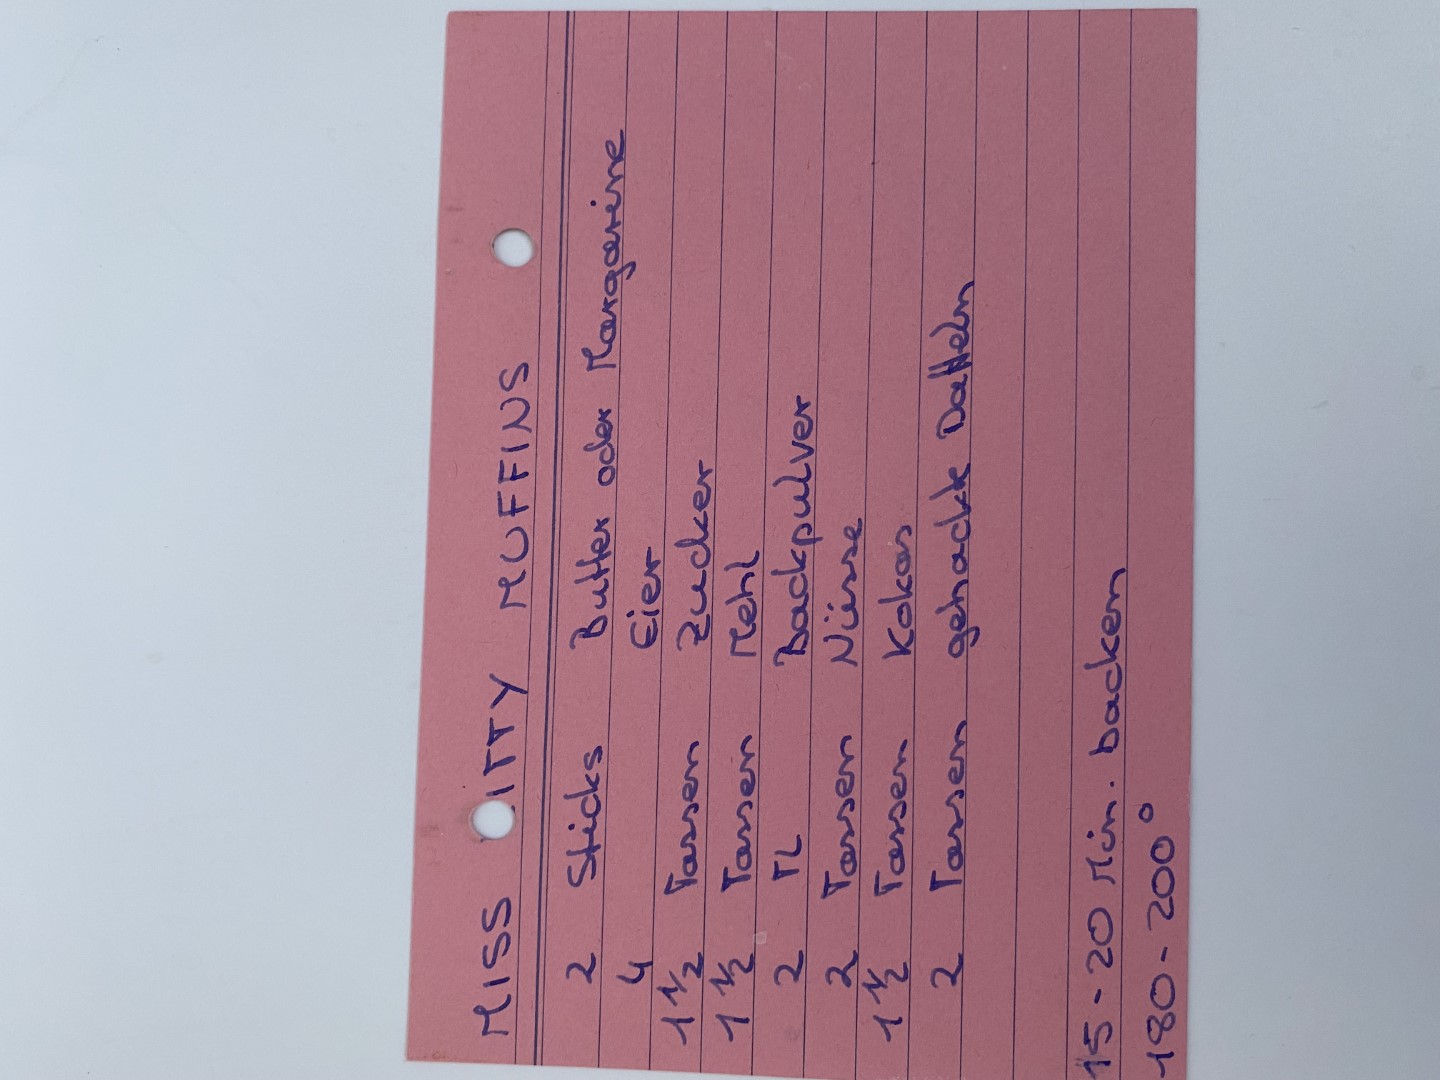 MISS ITTY MUFFINS
2 Sticks Butter oder Margarine
4 Eier
1 1/2 Tassen Zucker
1 1/2 Tassen Mehl
2 TL Backpulver
2 Tassen Nüsse
1 1/2 Tassen Kokos
2 Tassen gehackte Datteln
15-20 Min. backen
180-200°